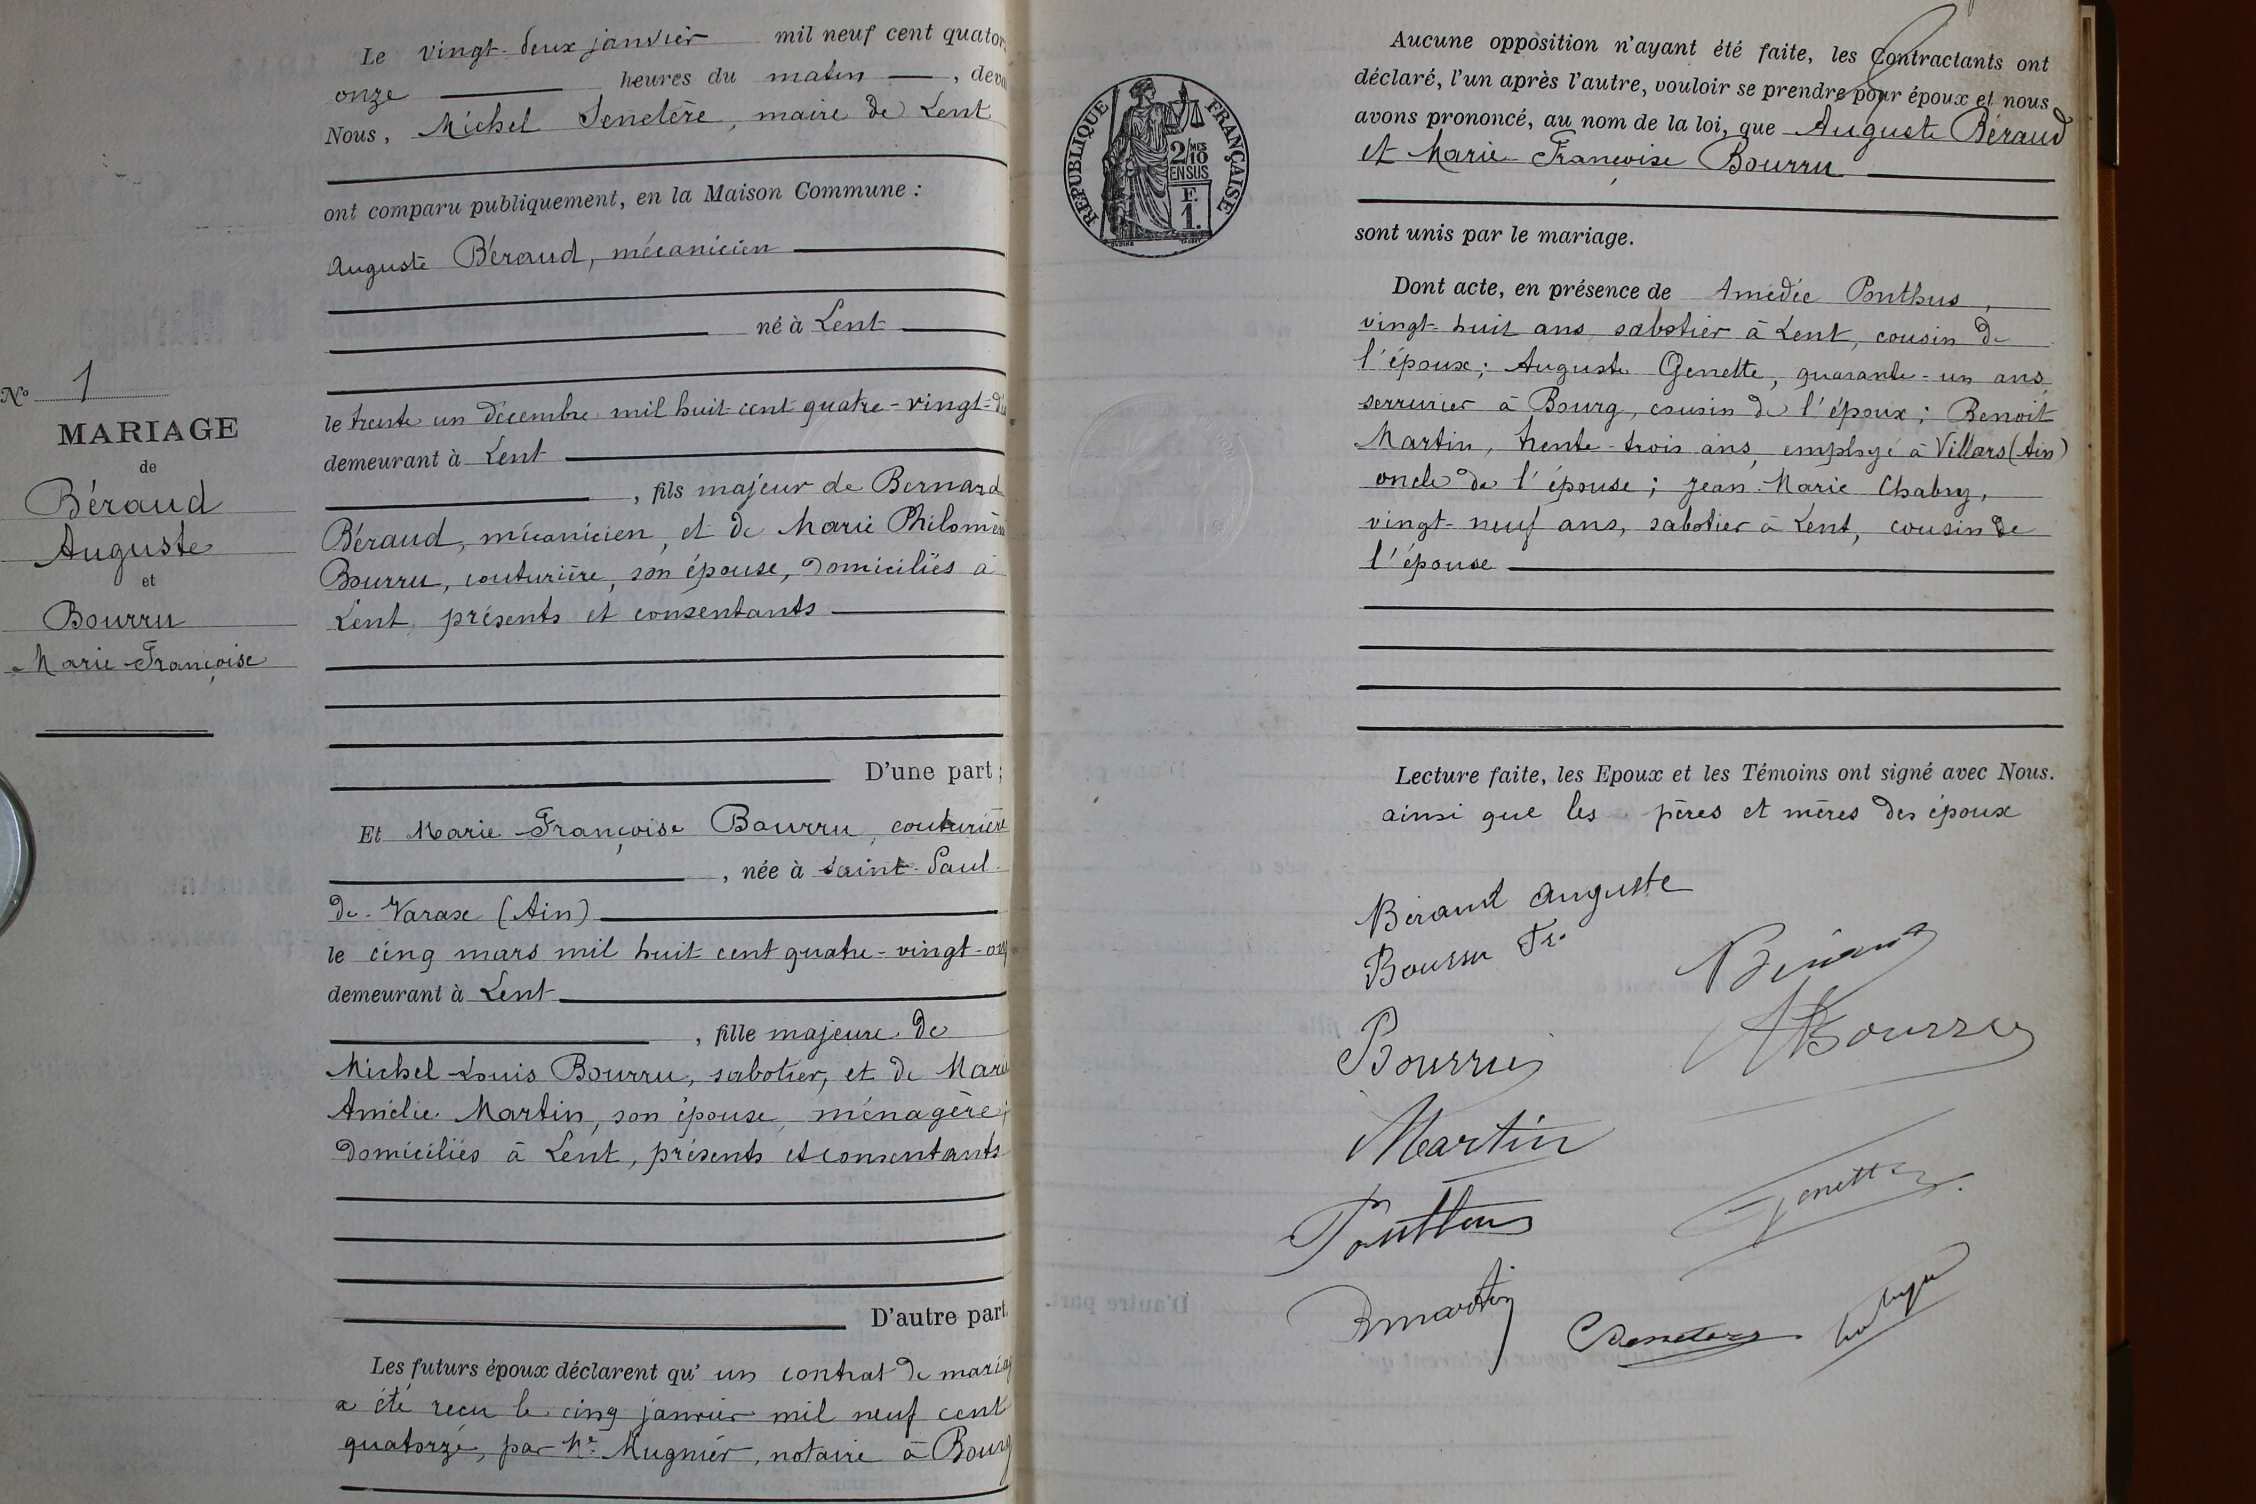 Le vingt-deux janvier mil neuf cent quator
onze heures du matin, deva
Nous, Michel Senetère, maire de Lent
ont comparu publiquement, en la Maison Commune :
Auguste Béraud, mécanicien
né à Lent
le trente un décembre mil huit cent quatre-vingt-di
demeurant à Lent
, fils majeur de Bernard
Béraud, mécanicien, et de Marie Philomène
Bourru, couturière, son épouse, domiciliés à
Lent, présents et consentants
D'une part ;
Et Marie-Françoise Bourru, couturière
, née à Saint-Paul-
de-Varax (Ain)
le cinq mars mil huit cent quatre-vingt-onz
demeurant à Lent
, fille majeure de
Michel-Louis Bourru, sabotier, et de Marie
Amélie Martin, son épouse, ménagère,
domiciliés à Lent, présents et consentants
D'autre part
Les futurs époux déclarent qu'un contrat de mariag
a été reçu le cinq janvier mil neuf cent
quatorze, par Me Mugnier, notaire à Bourg
No 1
MARIAGE
de
Béraud
Auguste
et
Bourru
Marie-Françoise
REPUBLIQUE FRANÇAISE
2/10 MES
EN SUS
F.
1.
Aucune opposition n'ayant été faite, les Contractants ont
déclaré, l'un après l'autre, vouloir se prendre pour époux et nous
avons prononcé, au nom de la loi, que Auguste Béraud
et Marie-Françoise Bourru
sont unis par le mariage.
Dont acte, en présence de Amédée Ponthus,
vingt-huit ans, sabotier à Lent, cousin de
l'époux ; Auguste Genette, quarante-un ans,
serrurier à Bourg, cousin de l'époux ; Benoit
Martin, trente-trois ans, employé à Villars (Ain)
oncle de l'épouse ; Jean-Marie Chabry,
vingt-neuf ans, sabotier à Lent, cousin de
l'épouse
Lecture faite, les Epoux et les Témoins ont signé avec Nous.
ainsi que les pères et mères des époux
Béraud Auguste
Bourru Fr.
Béraud
Bourru
Bourru
Martin
Ponthus
Genette
B martin
Senetère